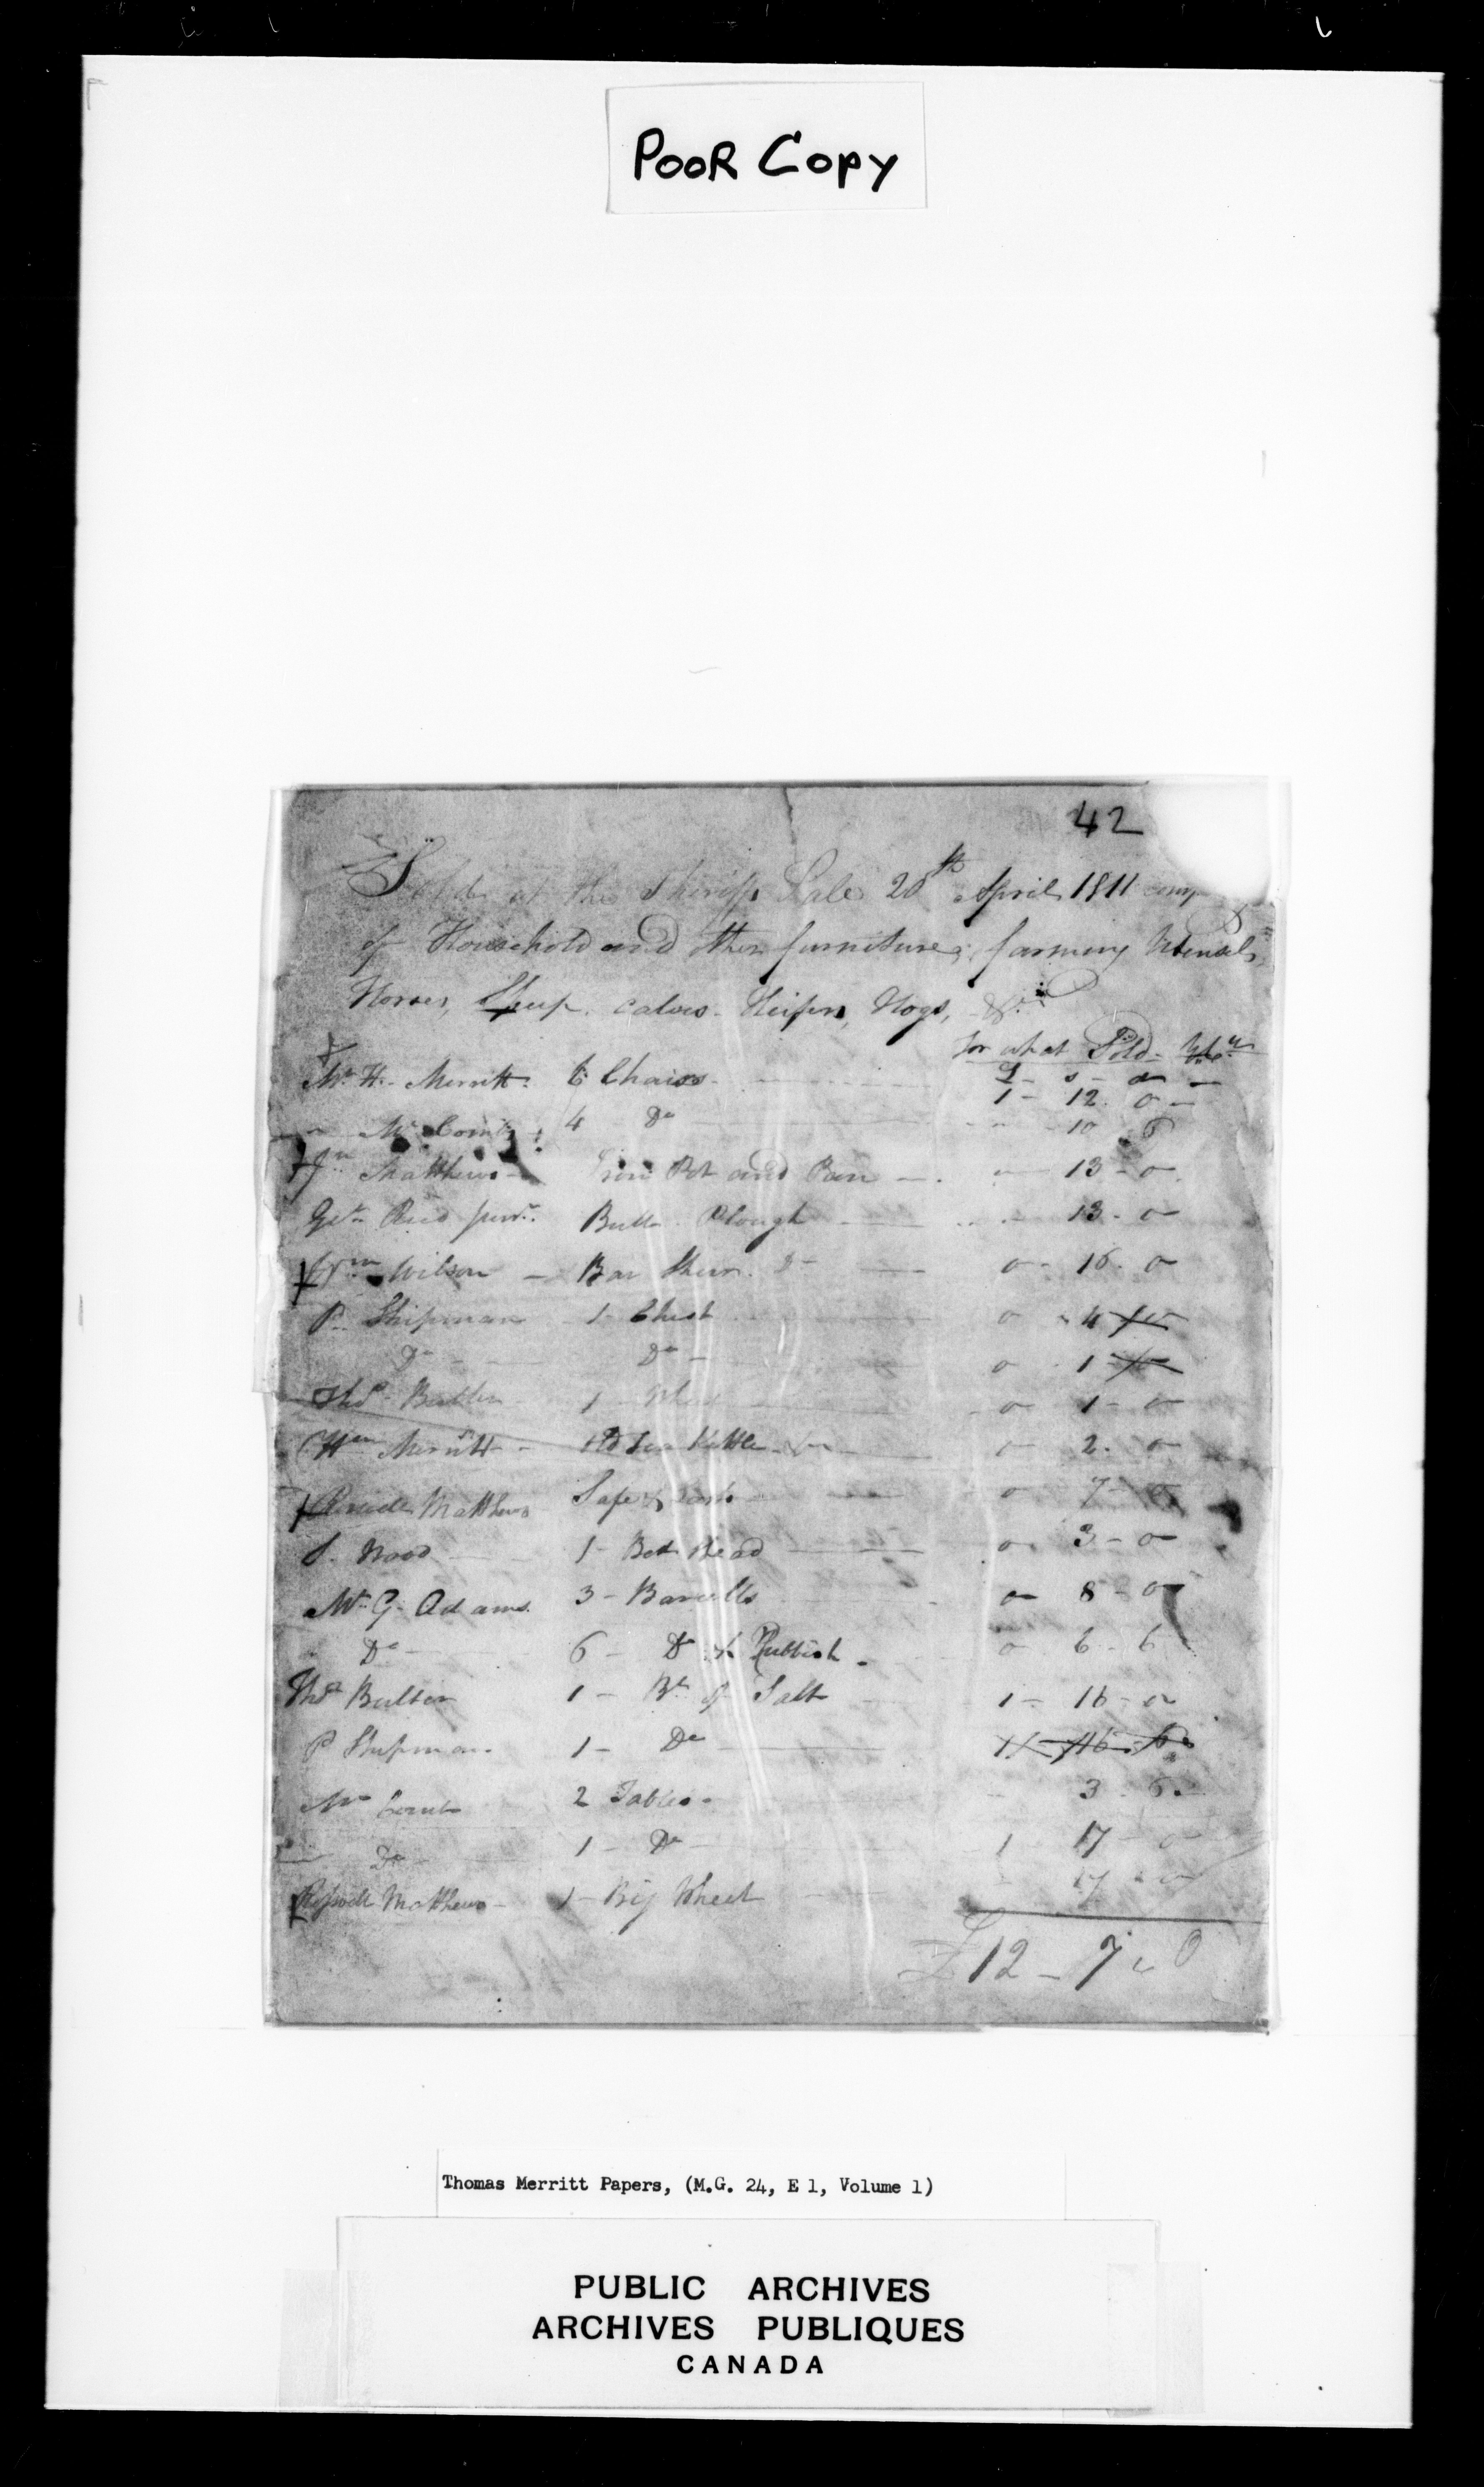 POOR COPY
42
Sold at the Sheriffs Sale 20th April 1811
of Household and other furniture; farming Utensils,
Horses, Sheep, calves, Heifers, Hogs, &c
for what Sold
£ s d
Mr H. Merritt 6 Chairs 1 - 12 - 0
Mr Comb 4 Do 10 6
Jn Matthews Iron Pot and Pan 13 - 0
Reid junr. Bull Plough 13 - 0
Wm Wilson Bar 0 - 16 - 0
P. Shipman 1 - Chest 0 4
Do Do 0 1
Thos Butler 1 0 1 - 0
Wm Merritt Old Tea Kettle 0 2 - 0
Matthews Safe & 0 7 -
S. Wood 1 - Bed stead 0 3 - 0
Mr G. Adams 3 - Barrells 0 8 - 0
Do 6 - Do & Rubbish 0 6 - 6
Thos Butler 1 - Bl of Salt 1 - 16 - 0
P Shipman 1 - Do
Mr Comb 2 Tables 3 6
Do 1 - Do 1 17 - 0
Roswell Matthews 1 - Big Wheel 17 - 0
£12 - 7 - 0
Thomas Merritt Papers, (M.G. 24, E 1, Volume 1)
PUBLIC ARCHIVES
ARCHIVES PUBLIQUES
CANADA